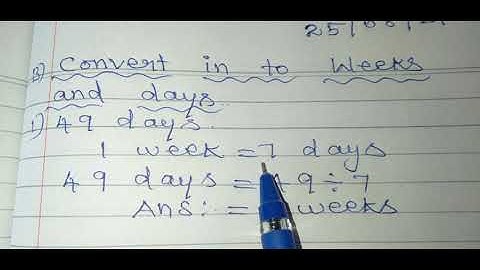 25/
B) Convert in to Weeks
and days.
1) 49 days.
1 week = 7 days
49 days = 9 ÷ 7
Ans: = weeks